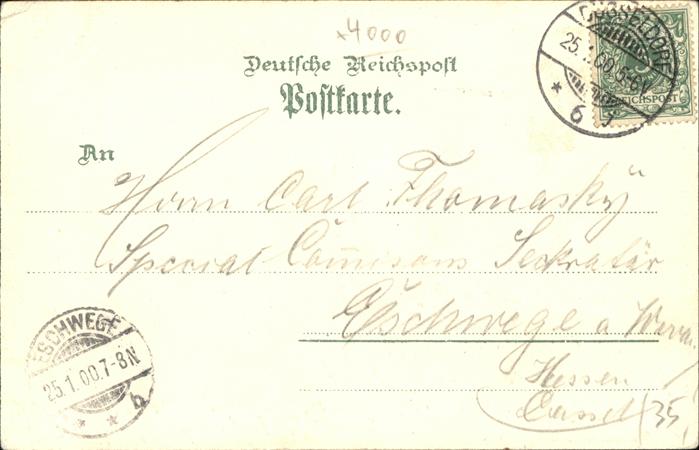 x4000
Deutsche Reichspost
Postkarte.
DÜSSELDORF
25.1.00.5-6V
* 6 f
REICHSPOST
An
Herrn Carl Thomasky
Special Comissons Sekretär
Eschwege a Werra
Hessen
Cassel
35
ESCHWEGE
25.1.00.7-8N
* * b